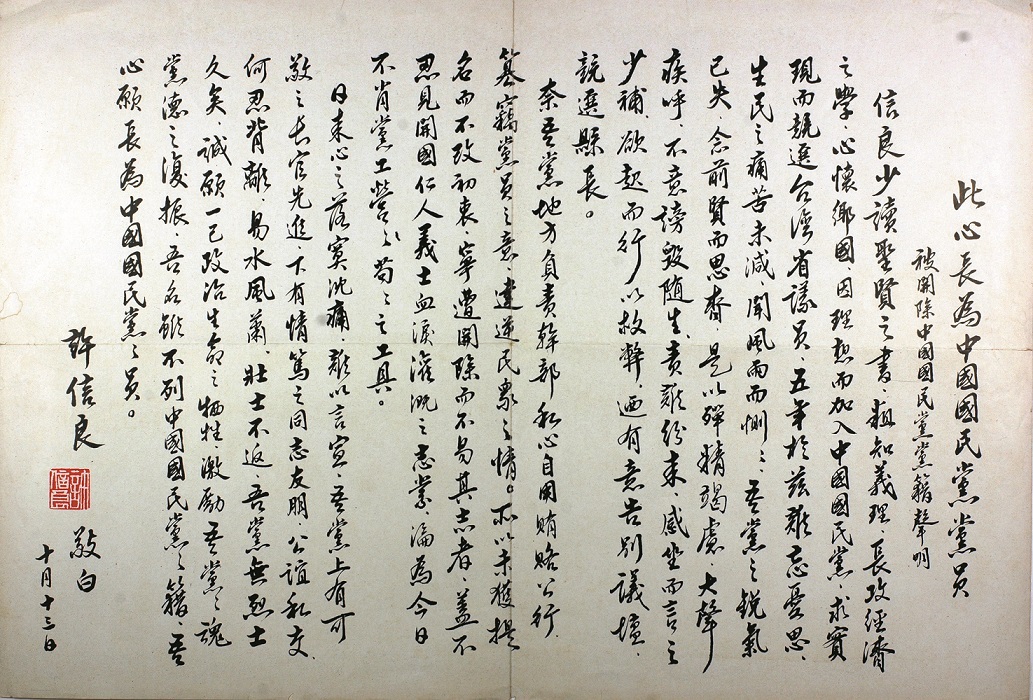 此心長為中國國民黨黨員
被開除中國國民黨黨籍聲明
信良少讀聖賢之書、粗知義理、長攻經濟
之學、心懷鄉國、因理想而加入中國國民黨、求實
現而競選台灣省議員、五年於茲難忘憂思、
生民之痛苦未減、聞風雨而惻惻、吾黨之銳氣
已失、念前賢而思齊、是以殫精竭慮、大聲
疾呼、不意謗毀隨生、責難紛來、感坐而言之
少補、欲起而行以救弊、迺有意告別議壇、
競選縣長。
奈吾黨地方負責幹部私心自用賄賂公行、
篡竊黨員之意、違逆民眾之情。所以未獲提
名而不改初衷、寧遭開除而不易其志者、蓋不
忍見開國仁人義士血淚灌溉之志業、淪為今日
不肖黨工營營苟苟之工具。
日來心之落寞沈痛、難以言宣、吾黨上有可
敬之長官先進、下有情篤之同志友朋、公誼私交、
何忍背離、易水風蕭、壯士不返、吾黨無烈士
久矣、誠願一己政治生命之犧牲激勵吾黨黨魂
黨德之復振、吾名縱不列中國國民黨之籍、吾
心願長為中國國民黨之員。
許信良
許信良
敬白
十月十三日